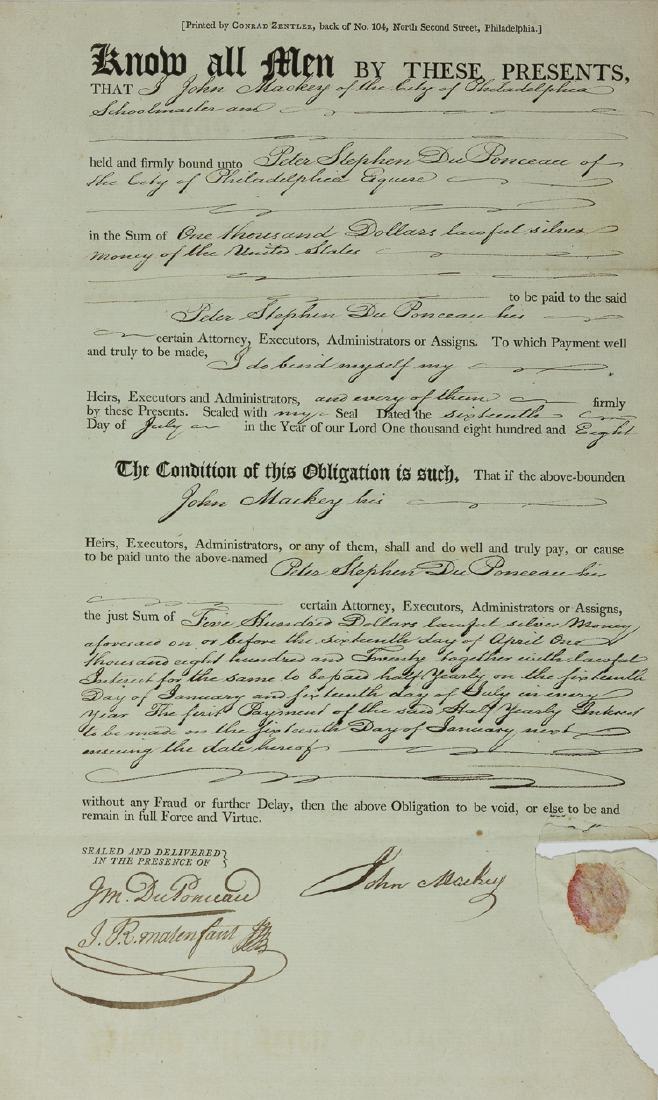 [Printed by CONRAD ZENTLER, back of No. 104, North Second Street, Philadelphia.]
Know all Men BY THESE PRESENTS,
THAT I John Mackey of the City of Philadelphia
Schoolmaster am
held and firmly bound unto Peter Stephen Du Ponceau of
the City of Philadelphia Esquire
in the Sum of One thousand Dollars lawful silver
money of the United States
to be paid to the said
Peter Stephen Du Ponceau his
certain Attorney, Executors, Administrators or Assigns. To which Payment well
and truly to be made, I do bind myself my
Heirs, Executors and Administrators, and every of them firmly
by these Presents. Sealed with my Seal Dated the sixteenth
Day of July in the Year of our Lord One thousand eight hundred and Eight
The Condition of this Obligation is such, That if the above-bounden
John Mackey his
Heirs, Executors, Administrators, or any of them, shall and do well and truly pay, or cause
to be paid unto the above-named Peter Stephen Du Ponceau his
certain Attorney, Executors, Administrators or Assigns,
the just Sum of Five Hundred Dollars lawful silver Money
aforesaid on or before the sixteenth day of April One
thousand eight hundred and Twenty together with lawful
Interest for the same to be paid half Yearly on the sixteenth
Day of January and sixteenth day of July in every
Year The first Payment of the said Half Yearly Interest
to be made on the sixteenth Day of January next
ensuing the date hereof
without any Fraud or further Delay, then the above Obligation to be void, or else to be and
remain in full Force and Virtue.
SEALED AND DELIVERED
IN THE PRESENCE OF
John Mackey
Jm. Du Ponceau
J. R. malenfant